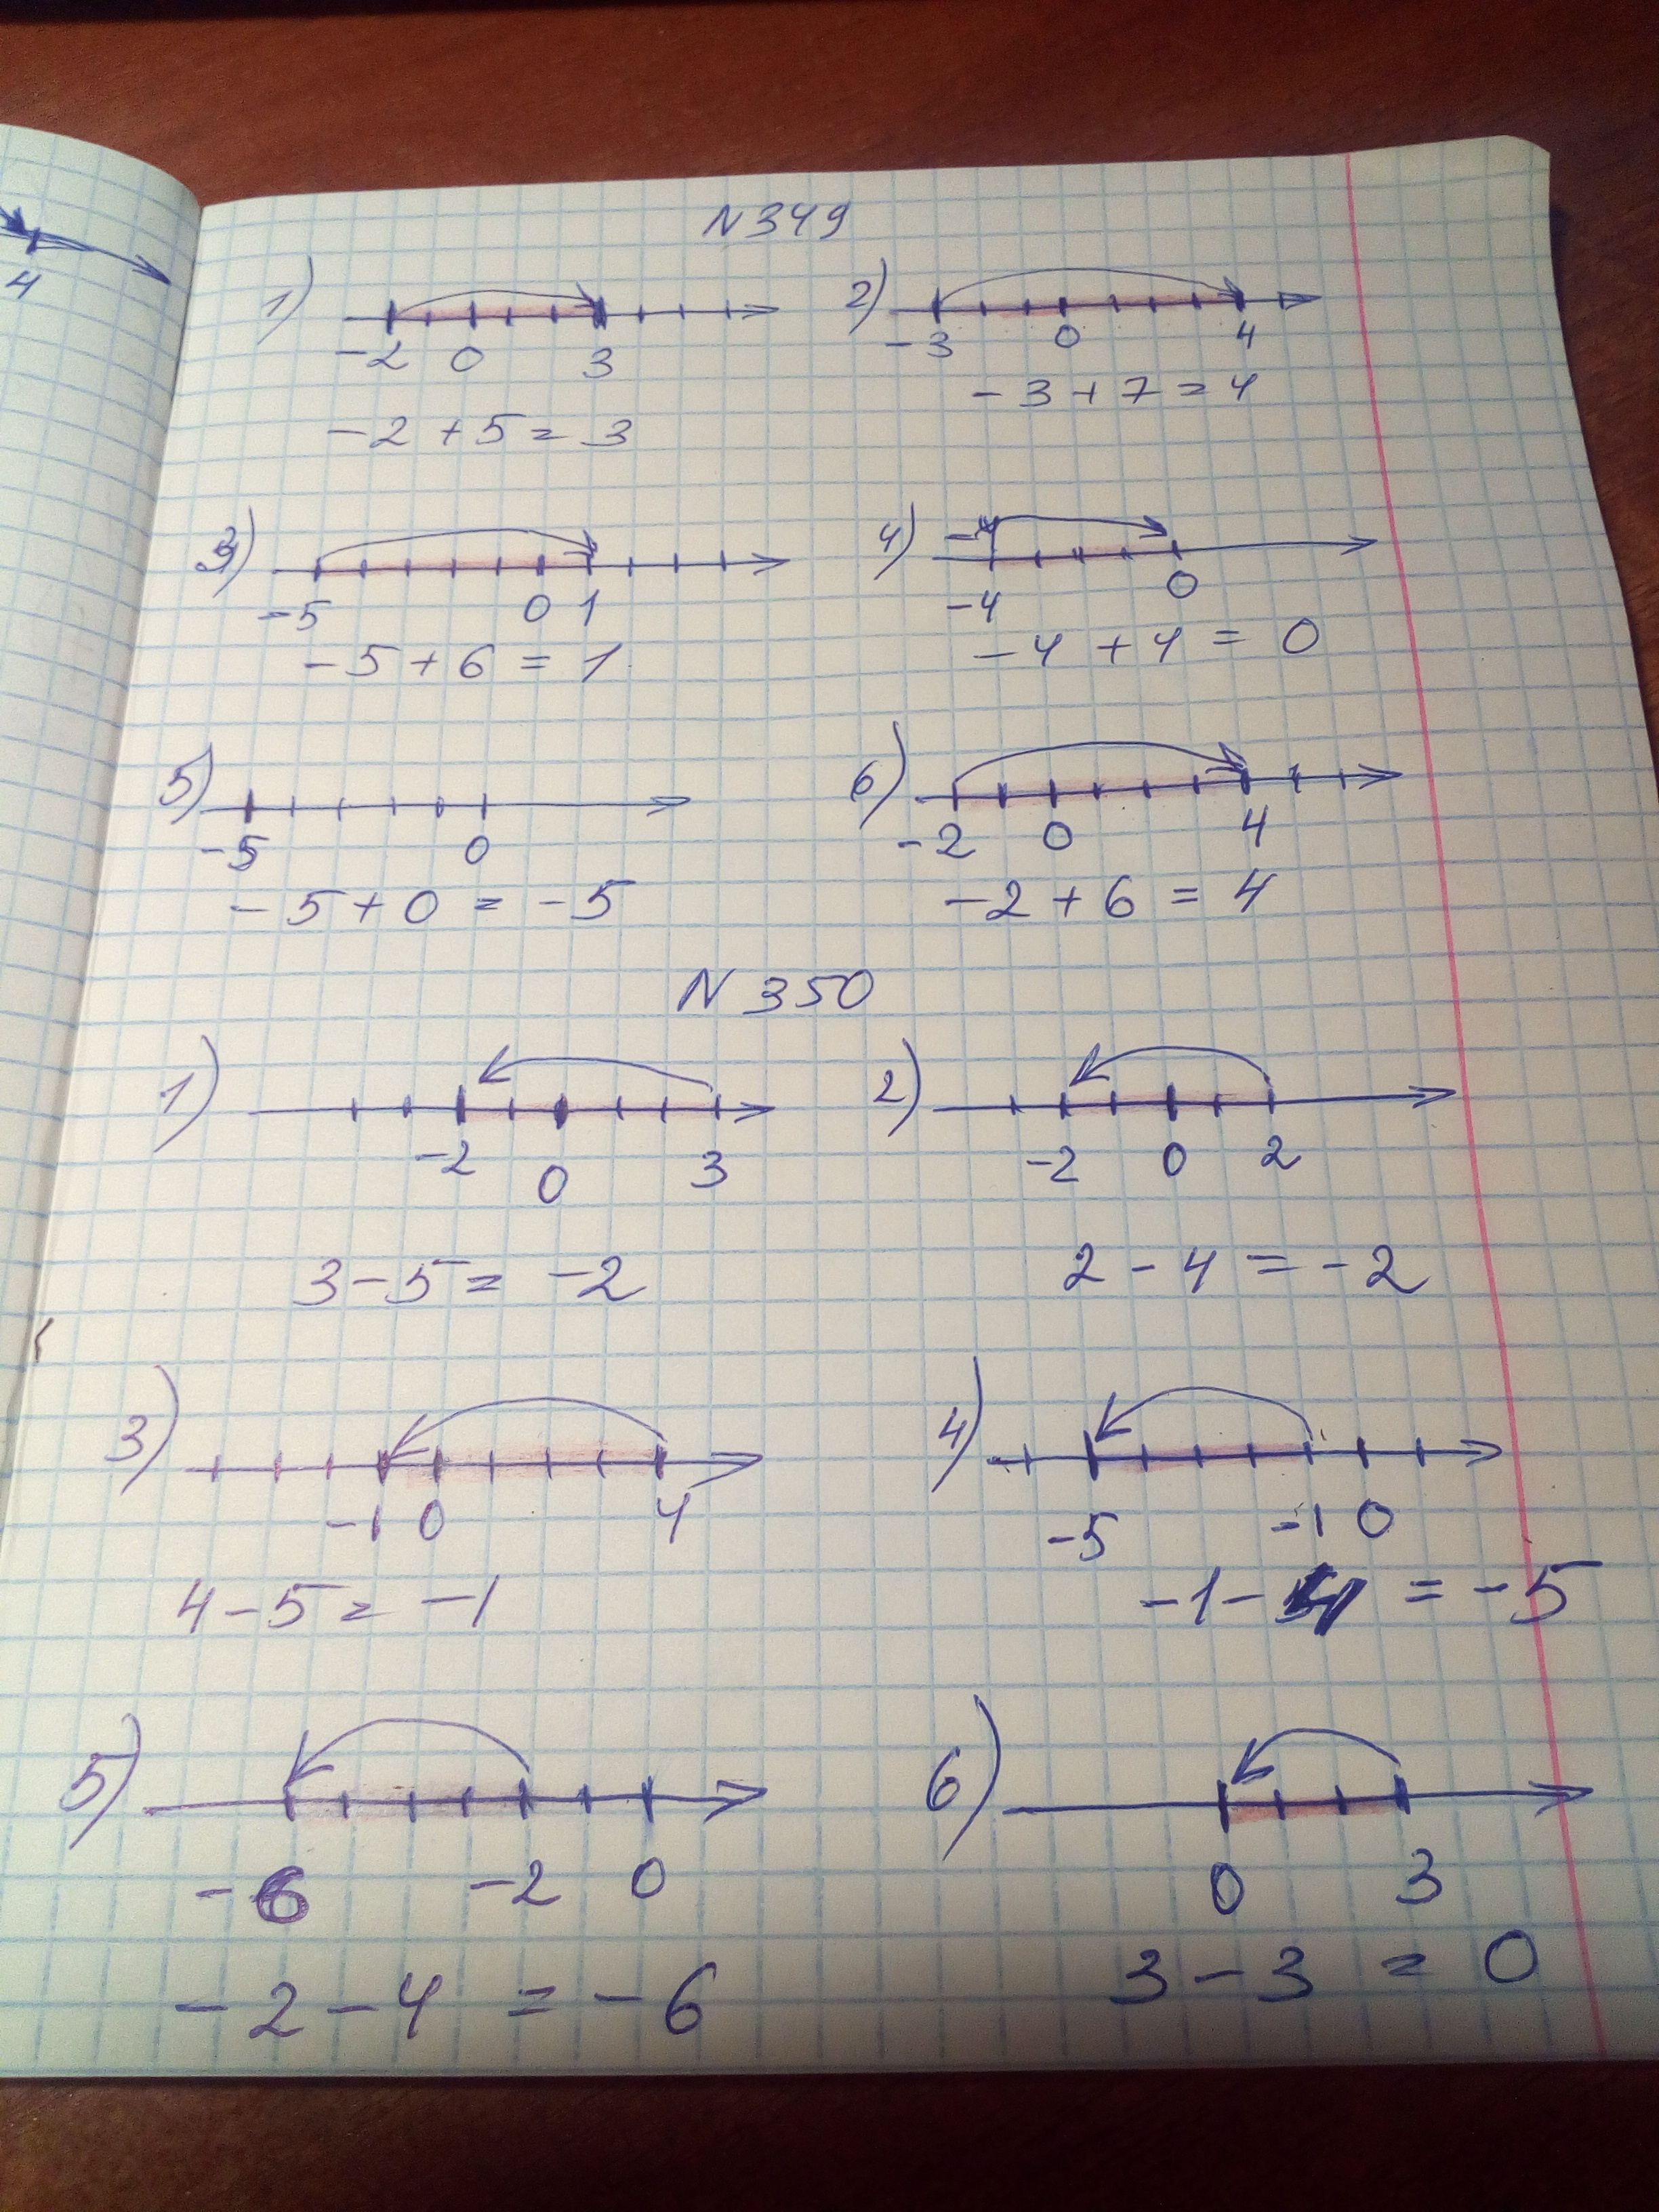 4
N 349
1) 2)
-2 0 3 -3 0 4
-2 + 5 = 3 -3 + 7 = 4
3) 4) -4
-5 0 1 -4 0
-5 + 6 = 1 -4 + 4 = 0
5) 6)
-5 0 -2 0 4
-5 + 0 = -5 -2 + 6 = 4
N 350
1) 2)
-2 0 3 -2 0 2
3 - 5 = -2 2 - 4 = -2
3) 4)
-1 0 4 -5 -1 0
4 - 5 = -1 -1 - 4 = -5
5) 6)
-6 -2 0 0 3
-2 - 4 = -6 3 - 3 = 0